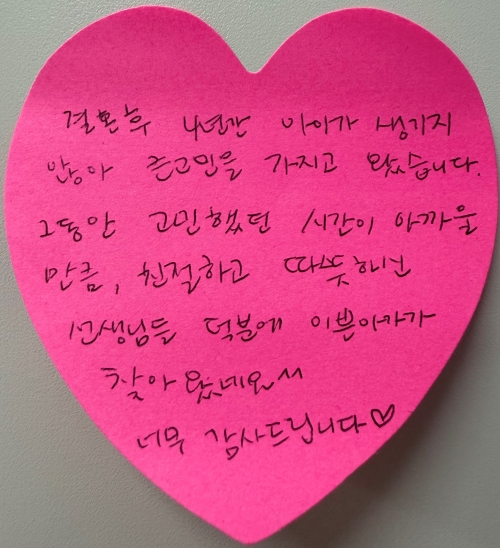 결혼후 4년간 아이가 생기지
않아 큰고민을 가지고 왔습니다.
그동안 고민했던 시간이 아까울
만큼, 친절하고 따뜻하신
선생님들 덕분에 이쁜아가가
찾아왔네요^^
너무 감사드립니다♡